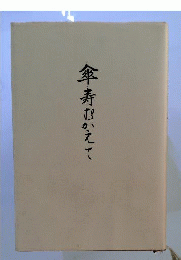 傘寿むかえて